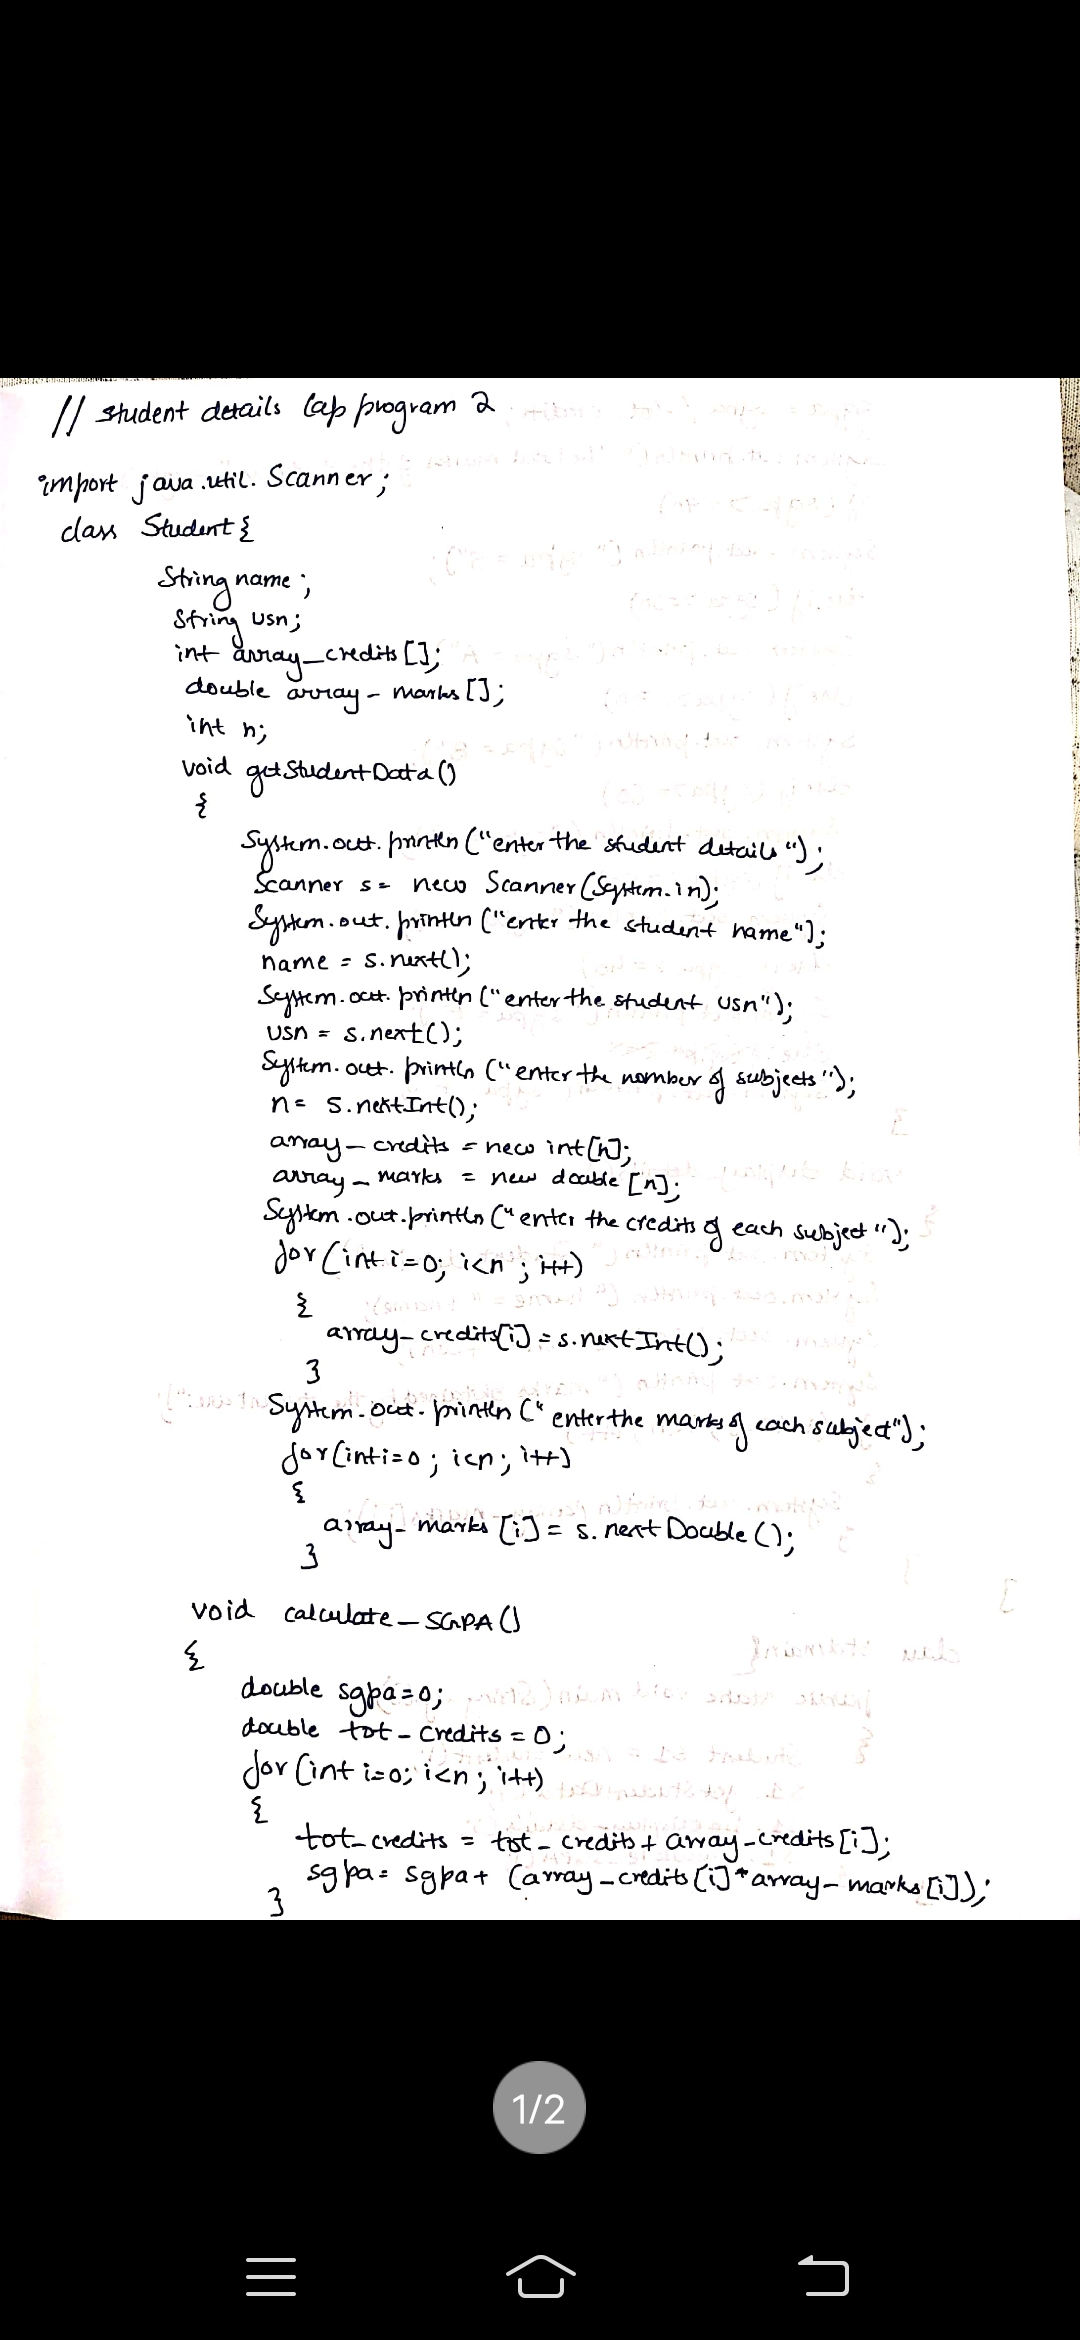 // student details lab program 2
import java.util.Scanner;
class Student{
String name;
String usn;
int array_credits[];
double array_marks[];
int n;
void getStudentData()
{
System.out.println("enter the student details");
Scanner s = new Scanner(System.in);
System.out.println("enter the student name");
name = s.next();
System.out.println("enter the student usn");
usn = s.next();
System.out.println("enter the number of subjects");
n = s.nextInt();
array_credits = new int[n];
array_marks = new double[n];
System.out.println("enter the credits of each subject");
for(int i=0; i<n; i++)
{
array_credits[i] = s.nextInt();
}
System.out.println("enter the marks of each subject");
for(int i=0; i<n; i++)
{
array_marks[i] = s.nextDouble();
}
void calculate_SGPA()
{
double sgpa=0;
double tot_credits = 0;
for(int i=0; i<n; i++)
{
tot_credits = tot_credits + array_credits[i];
sgpa = sgpa + (array_credits[i]*array_marks[i]);
}
1/2